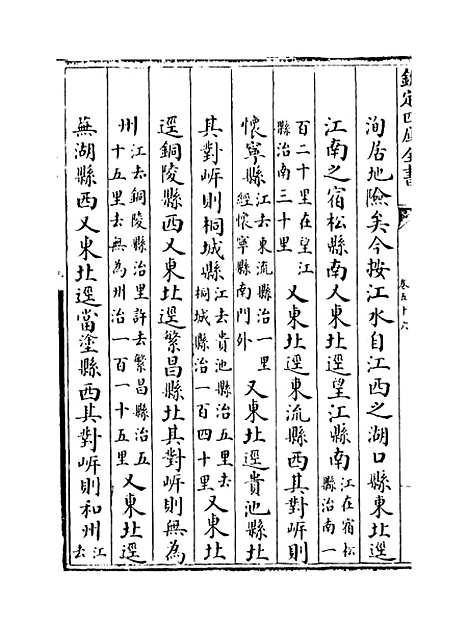 欽定四庫全書
卷五十六
洵居地險矣今按江水自江西之湖口縣東北逕
江南之宿松縣南又東北逕望江縣南江在宿松縣治南一
百二十里在望江縣治南三十里又東北逕東流縣西其對岸則
懷寧縣江去東流縣治一里經懷寧縣南門外又東北逕貴池縣北
其對岸則桐城縣江去貴池縣治五里去桐城縣治一百四十里又東北
逕銅陵縣西又東北逕繁昌縣北其對岸則無為
州江去銅陵縣治里許去繁昌縣治五十五里去無為州治一百一十五里又東北逕
蕪湖縣西又東北逕當塗縣西其對岸則和州江去